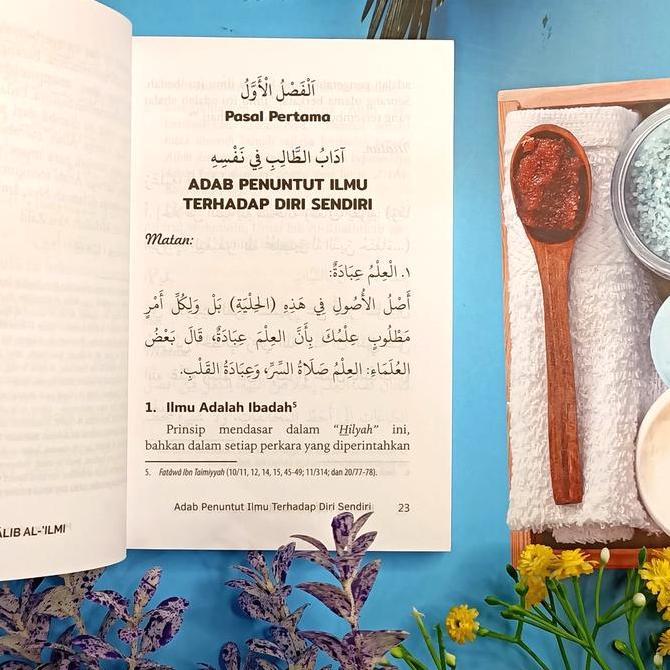 اَلْفَصْلُ الْأَوَّلُ
Pasal Pertama
آدَابُ الطَّالِبِ فِي نَفْسِهِ
ADAB PENUNTUT ILMU
TERHADAP DIRI SENDIRI
Matan:
١. الْعِلْمُ عِبَادَةٌ:
أَصْلُ الْأُصُولِ فِي هَذِهِ (الحِلْيَةِ) بَلْ وَلِكُلِّ أَمْرٍ
مَطْلُوبٍ عِلْمُكَ بِأَنَّ العِلْمَ عِبَادَةٌ، قَالَ بَعْضُ
العُلَمَاءِ: العِلْمُ صَلَاةُ السِّرِّ، وَعِبَادَةُ القَلْبِ.
1. Ilmu Adalah Ibadah⁵
Prinsip mendasar dalam “Hilyah” ini,
bahkan dalam setiap perkara yang diperintahkan
5. Fatâwâ Ibn Taimiyyah (10/11, 12, 14, 15, 45-49; 11/314; dan 20/77-78).
Adab Penuntut Ilmu Terhadap Diri Sendiri 23
ÂLIB AL-'ILMI